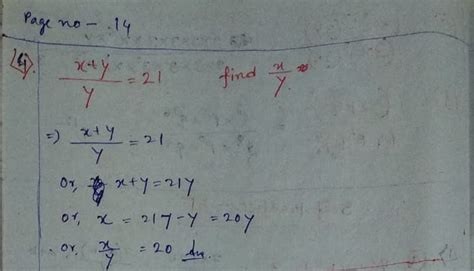 Page no - .14
4. (x+y)/y = 21 find x/y
=) (x+y)/y = 21
or, x+y = 21y
or, x = 21y-y = 20y
or, x/y = 20 Ans.